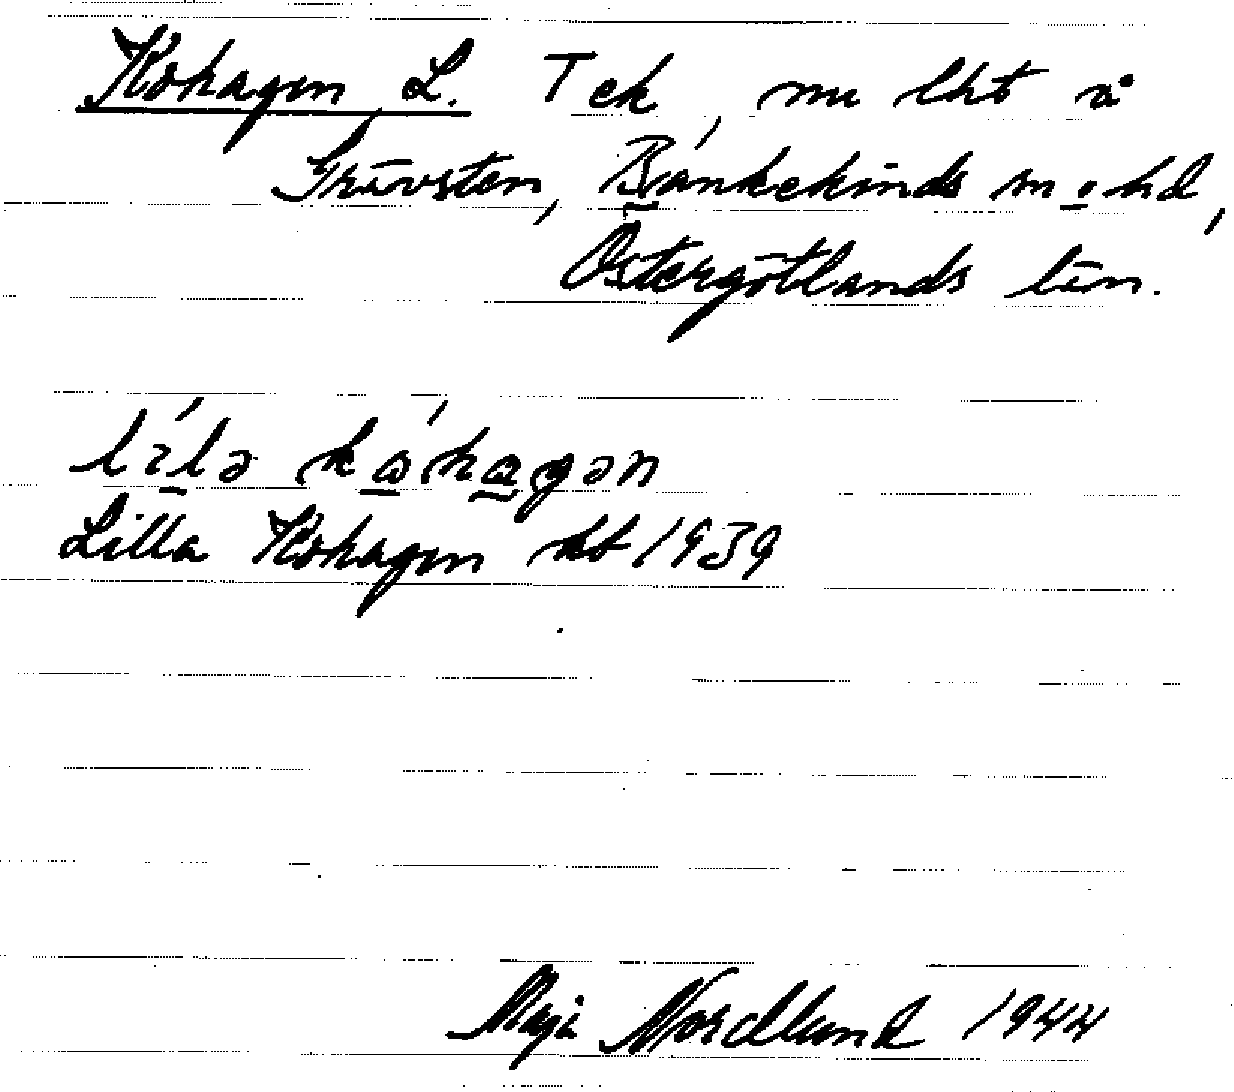 Kohagen, L. Tek, nu lht å
Grävsten, Bankekinds sn o hd,
Östergötlands län.
lílə kóhagən
Lilla Kohagen kb 1939
Maja Nordlund 1944